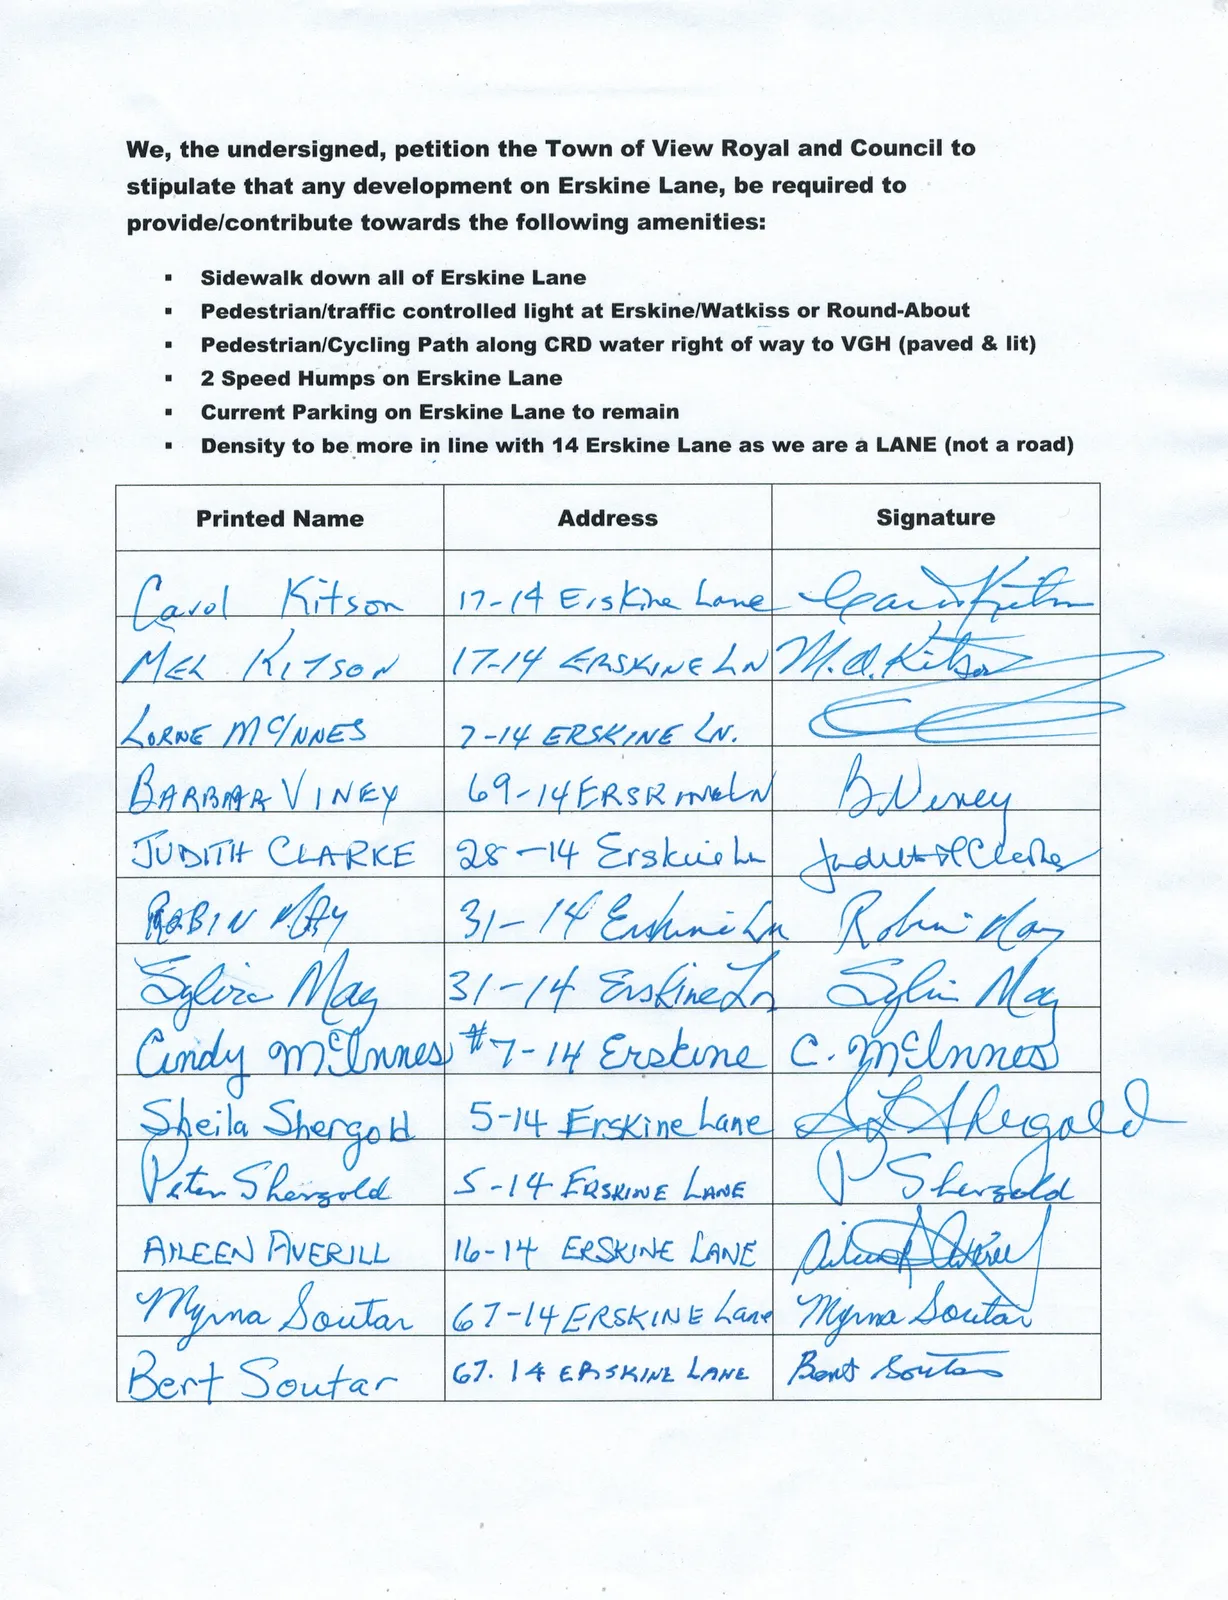 We, the undersigned, petition the Town of View Royal and Council to
stipulate that any development on Erskine Lane, be required to
provide/contribute towards the following amenities:
▪ Sidewalk down all of Erskine Lane
▪ Pedestrian/traffic controlled light at Erskine/Watkiss or Round-About
▪ Pedestrian/Cycling Path along CRD water right of way to VGH (paved & lit)
▪ 2 Speed Humps on Erskine Lane
▪ Current Parking on Erskine Lane to remain
▪ Density to be more in line with 14 Erskine Lane as we are a LANE (not a road)
Printed Name Address Signature
Carol Kitson 17-14 Erskine Lane Carol Kitson
MEL KITSON 17-14 ERSKINE LN M.A. Kitson
LORNE McINNES 7-14 ERSKINE LN.
BARBARA VINEY 69-14 ERSKINE LN B Viney
JUDITH CLARKE 28-14 Erskine Ln Judith Clarke
ROBIN MAY 31-14 Erskine Ln Robin May
Sylvia May 31-14 Erskine Ln Sylvia May
Cindy McInnes #7-14 Erskine C. McInnes
Sheila Shergold 5-14 Erskine Lane Shergold
Peter Shergold 5-14 ERSKINE LANE P Shergold
AILEEN AVERILL 16-14 ERSKINE LANE Aileen Averill
Myrna Soutar 67-14 ERSKINE Lane Myrna Soutar
Bert Soutar 67.14 ERSKINE LANE Bert Soutar